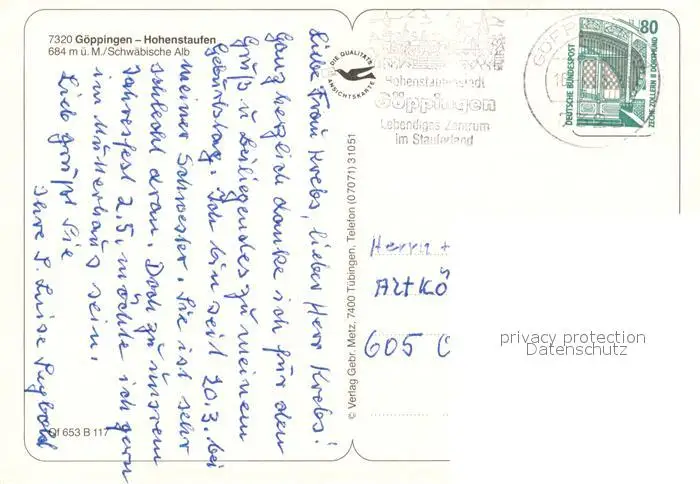 7320 Göppingen – Hohenstaufen
684 m ü. M./Schwäbische Alb
Liebe Frau Krebs, lieber Herr Krebs!
Ganz herzlich danke ich für den
Gruß u. Beiliegendes zu meinem
Geburtstag. Ich bin seit 20.3. bei
meiner Schwester. Sie ist sehr
schlecht dran. Doch zu unserm
Jahresfest 2.5. möchte ich gern
im Mutterhaus sein.
Lieb grüßt Sie
Ihre S. Luise
Qf 653 B 117
DIE QUALITÄTS
ANSICHTSKARTE
© Verlag Gebr. Metz, 7400 Tübingen, Telefon (07071) 31051
Hohenstaufenstadt
Göppingen
Lebendiges Zentrum
im Stauferland
GÖPP
80
DEUTSCHE BUNDESPOST
ZECHE ZOLLERN II DORTMUND
Herrn +
Altkö
605 O
privacy protection
Datenschutz